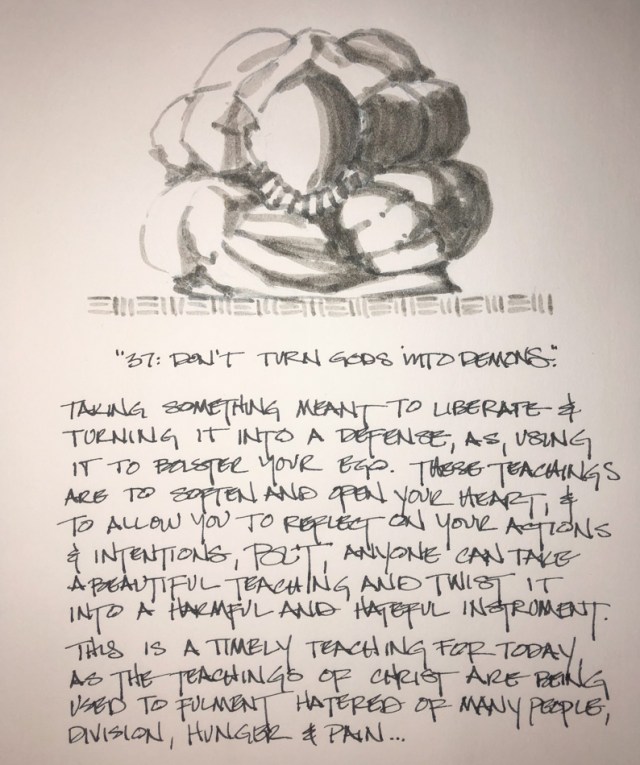 "37: DON'T TURN GODS INTO DEMONS."
TAKING SOMETHING MEANT TO LIBERATE &
TURNING IT INTO A DEFENSE, AS, USING
IT TO BOLSTER YOUR EGO. THESE TEACHINGS
ARE TO SOFTEN AND OPEN YOUR HEART, &
TO ALLOW YOU TO REFLECT ON YOUR ACTIONS
& INTENTIONS, BUT, ANYONE CAN TAKE
A BEAUTIFUL TEACHING AND TWIST IT
INTO A HARMFUL AND HATEFUL INSTRUMENT.
THIS IS A TIMELY TEACHING FOR TODAY
AS THE TEACHINGS OF CHRIST ARE BEING
USED TO FULMENT HATERED OF MANY PEOPLE,
DIVISION, HUNGER & PAIN...